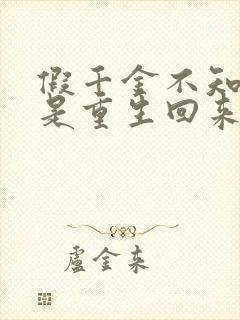 假千金不知
是重生回来
盧金来